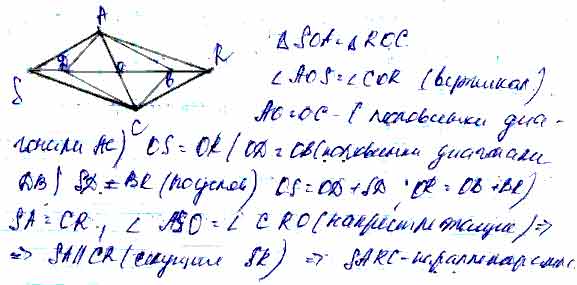 A
S
D
O
B
R
C
△SOA = △ROC
∠AOS = ∠COR (вертикал)
AO = OC - (половинки диа-
гонали AC) OS = OR (OD = OB (половинки диагонали
DB) SD = BR (по услов) OS = OD + SD, OR = OB + BR)
SA = CR, ∠ASO = ∠CRO (накрестлежащие) ⇒
⇒ SA || CR (секущие SR) ⇒ SARC - параллелограмм.